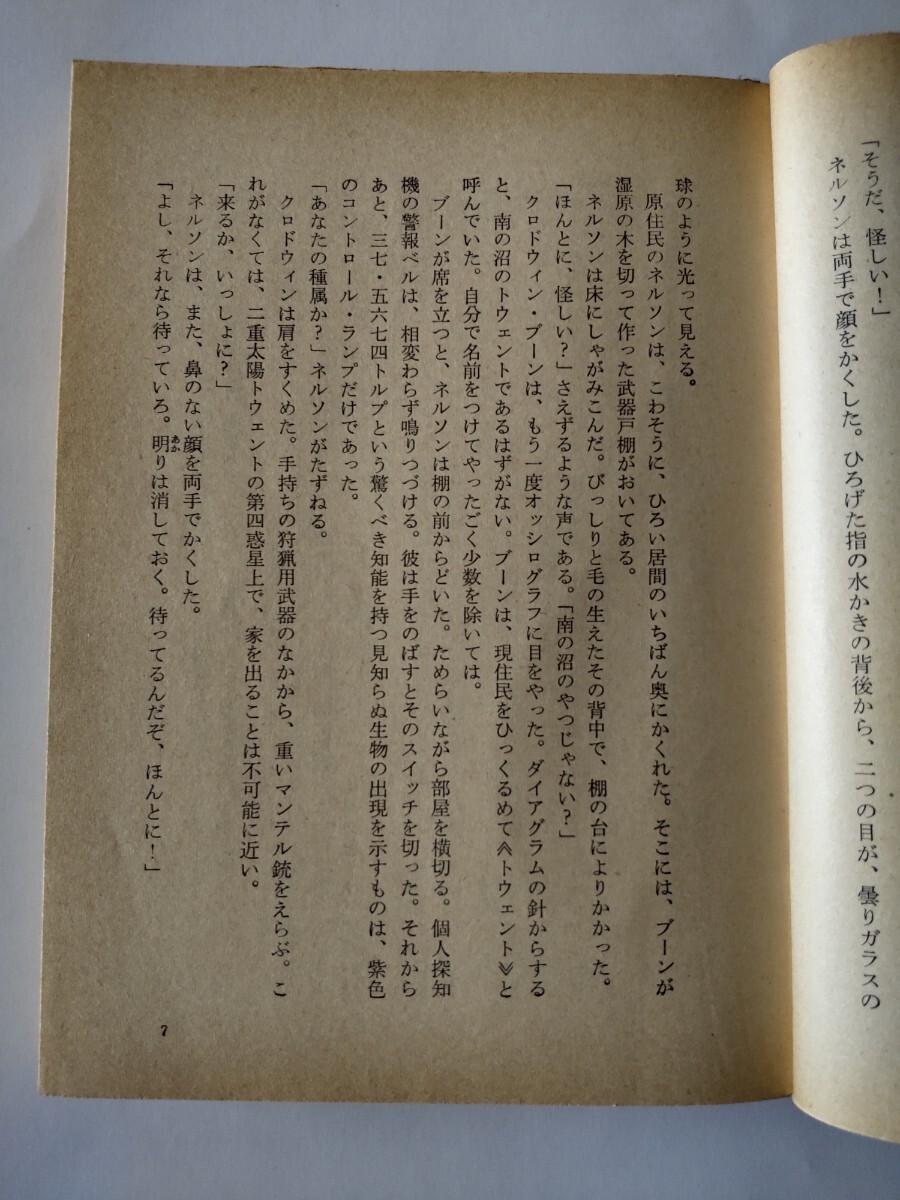 「そうだ、怪しい！」
ネルソンは両手で顔をかくした。ひろげた指の水かきの背後から、二つの目が、曇りガラスの
球のように光って見える。
原住民のネルソンは、こわそうに、ひろい居間のいちばん奥にかくれた。そこには、ブーンが
湿原の木を切って作った武器戸棚がおいてある。
ネルソンは床にしゃがみこんだ。びっしりと毛の生えたその背中で、棚の台によりかかった。
「ほんとに、怪しい？」さえずるような声である。「南の沼のやつじゃない？」
クロドウィン・ブーンは、もう一度オッシログラフに目をやった。ダイアグラムの針からする
と、南の沼のトウェントであるはずがない。ブーンは、現住民をひっくるめて≪トウェント≫と
呼んでいた。自分で名前をつけてやったごく少数を除いては。
ブーンが席を立つと、ネルソンは棚の前からどいた。ためらいながら部屋を横切る。個人探知
機の警報ベルは、相変わらず鳴りつづける。彼は手をのばすとそのスイッチを切った。それから
あと、三七・五六七四トルプという驚くべき知能を持つ見知らぬ生物の出現を示すものは、紫色
のコントロール・ランプだけであった。
「あなたの種属か？」ネルソンがたずねる。
クロドウィンは肩をすくめた。手持ちの狩猟用武器のなかから、重いマンテル銃をえらぶ。こ
れがなくては、二重太陽トウェントの第四惑星上で、家を出ることは不可能に近い。
「来るか、いっしょに？」
ネルソンは、また、鼻のない顔を両手でかくした。
「よし、それなら待っていろ。明りは消しておく。待ってるんだぞ、ほんとに！」
あか
7